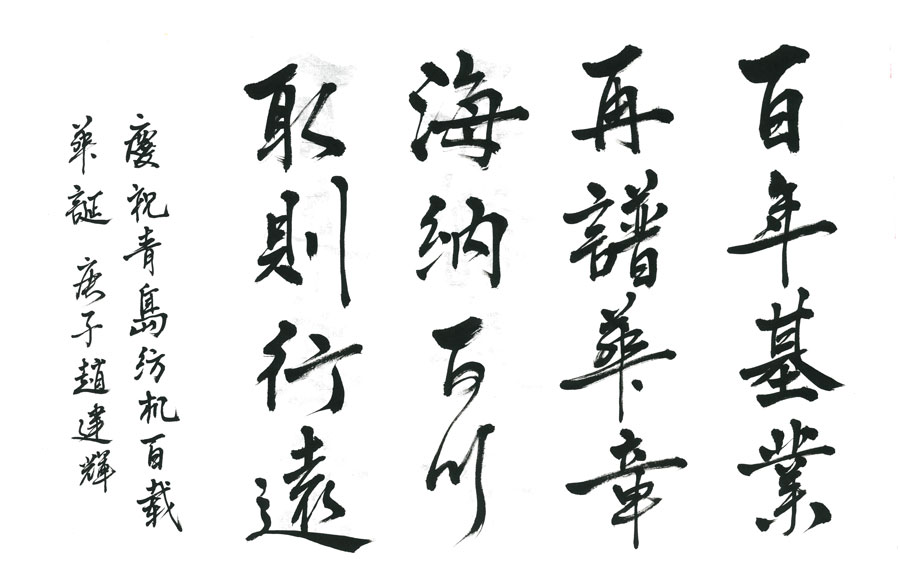 百年基業
再譜華章
海納百川
取則行遠
慶祝青島紡机百載
華誕 庚子趙建輝